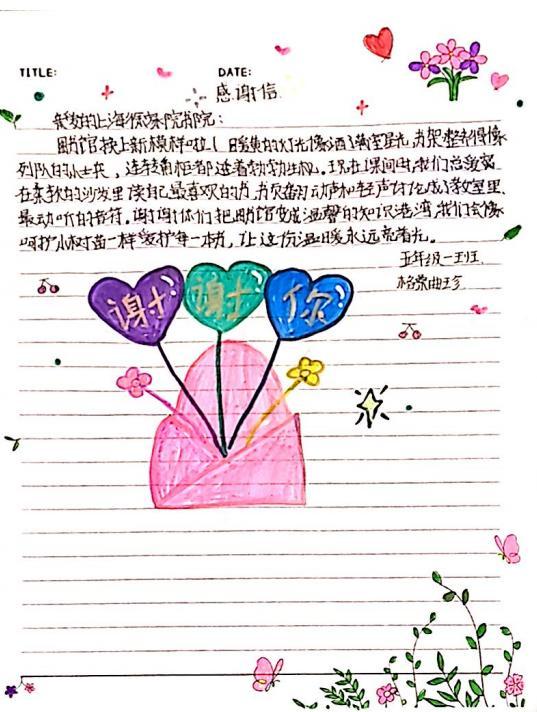 TITLE:
DATE:
感谢信
亲爱的上海徐 院 院：
图书馆换上新模样啦！暖黄的灯光像洒满室星光，书架整齐得像
列队的小士兵，连转角柜都透着勃勃生机。现在课间时，我们总爱窝
在柔软的沙发里读自己最喜欢的书，书页翻动声和轻声讨论成了教室里
最动听的音符。谢谢你们把图书馆变成温馨的知识港湾，我们会像
呵护小树苗一样爱护每一本书，让这份温暖永远亮着光。
五年级一班
格桑曲珍
谢谢你